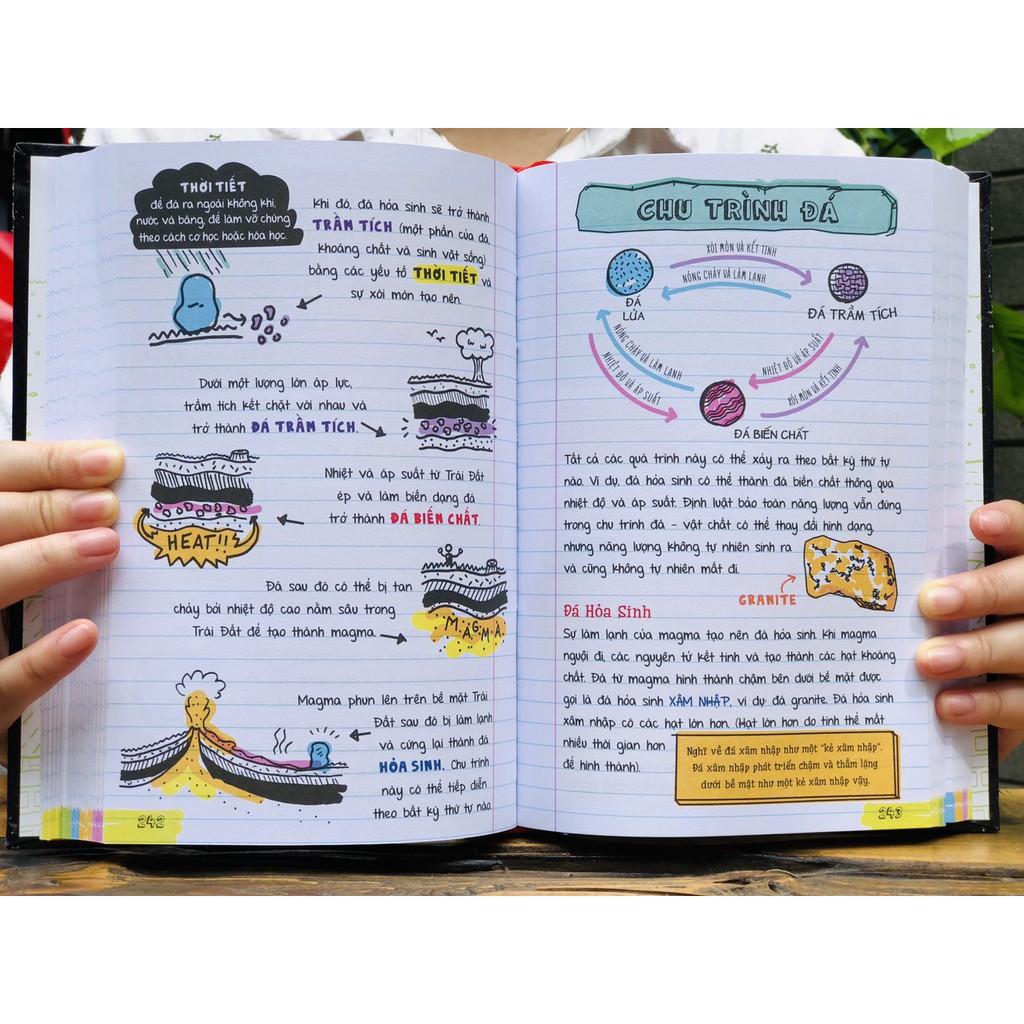 THỜI TIẾT
để đá ra ngoài không khí,
nước và băng, để làm vỡ chúng
theo cách cơ học hoặc hóa học.
Khi đó, đá hỏa sinh sẽ trở thành
TRẦM TÍCH (một phần của đá,
khoáng chất và sinh vật sống)
bằng các yếu tố THỜI TIẾT và
sự xói mòn tạo nên.
Dưới một lượng lớn áp lực,
trầm tích kết chặt với nhau và
trở thành ĐÁ TRẦM TÍCH.
Nhiệt và áp suất từ Trái Đất
ép và làm biến dạng đá
trở thành ĐÁ BIẾN CHẤT.
HEAT!!
Đá sau đó có thể bị tan
chảy bởi nhiệt độ cao nằm sâu trong
Trái Đất để tạo thành magma.
M.A.G.M.A.
Magma phun lên trên bề mặt Trái
Đất sau đó bị làm lạnh
và cứng lại thành đá
HỎA SINH. Chu trình
này có thể tiếp diễn
theo bất kỳ thứ tự nào.
242
CHU TRÌNH ĐÁ
XÓI MÒN VÀ KẾT TINH
NÓNG CHẢY VÀ LÀM LẠNH
ĐÁ
LỬA
ĐÁ TRẦM TÍCH
NÓNG CHẢY VÀ LÀM LẠNH
NHIỆT ĐỘ VÀ ÁP SUẤT
NHIỆT ĐỘ VÀ ÁP SUẤT
XÓI MÒN VÀ KẾT TINH
ĐÁ BIẾN CHẤT
Tất cả các quá trình này có thể xảy ra theo bất kỳ thứ tự
nào. Ví dụ, đá hỏa sinh có thể thành đá biến chất thông qua
nhiệt độ và áp suất. Định luật bảo toàn năng lượng vẫn đúng
trong chu trình đá – vật chất có thể thay đổi hình dạng,
nhưng năng lượng không tự nhiên sinh ra
và cũng không tự nhiên mất đi.
GRANITE
Đá Hỏa Sinh
Sự làm lạnh của magma tạo nên đá hỏa sinh. Khi magma
nguội đi, các nguyên tử kết tinh và tạo thành các hạt khoáng
chất. Đá từ magma hình thành chậm bên dưới bề mặt được
gọi là đá hỏa sinh XÂM NHẬP, ví dụ đá granite. Đá hỏa sinh
xâm nhập có các hạt lớn hơn. (Hạt lớn hơn do tinh thể mất
nhiều thời gian hơn
để hình thành).
Nghĩ về đá xâm nhập như một "kẻ xâm nhập".
Đá xâm nhập phát triển chậm và thầm lặng
dưới bề mặt như một kẻ xâm nhập vậy.
243